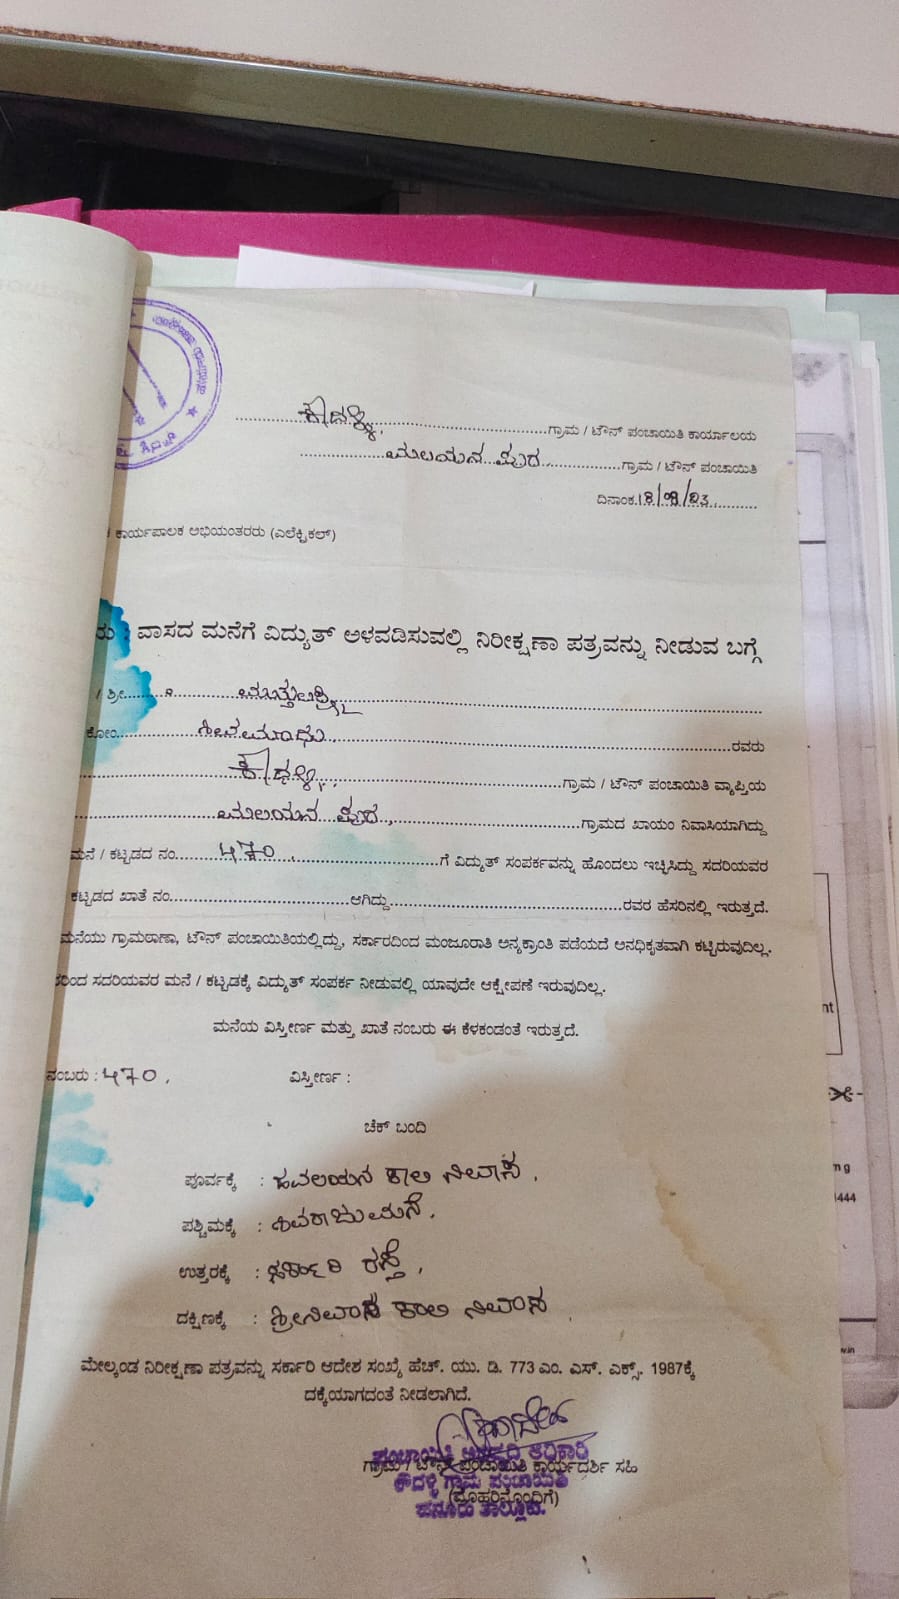 ಕೌದಳ್ಳಿ ಗ್ರಾಮ / ಟೌನ್ ಪಂಚಾಯಿತಿ ಕಾರ್ಯಾಲಯ
ಗ್ರಾಮ / ಟೌನ್ ಪಂಚಾಯಿತಿ
ದಿನಾಂಕ
ಕಾರ್ಯಪಾಲಕ ಅಭಿಯಂತರರು (ಎಲೆಕ್ಟ್ರಿಕಲ್)
ವಾಸದ ಮನೆಗೆ ವಿದ್ಯುತ್ ಅಳವಡಿಸುವಲ್ಲಿ ನಿರೀಕ್ಷಣಾ ಪತ್ರವನ್ನು ನೀಡುವ ಬಗ್ಗೆ
/ ಶ್ರೀ ಮುತ್ತುಲಕ್ಷ್ಮಿ
ಕೋಂ ರವರು
ಕೌದಳ್ಳಿ ಗ್ರಾಮ / ಟೌನ್ ಪಂಚಾಯಿತಿ ವ್ಯಾಪ್ತಿಯ
ಗ್ರಾಮದ ಖಾಯಂ ನಿವಾಸಿಯಾಗಿದ್ದು
ಮನೆ / ಕಟ್ಟಡದ ನಂ ೪೭೦ ಗೆ ವಿದ್ಯುತ್ ಸಂಪರ್ಕವನ್ನು ಹೊಂದಲು ಇಚ್ಛಿಸಿದ್ದು ಸದರಿಯವರ
ಕಟ್ಟಡದ ಖಾತೆ ನಂ ಆಗಿದ್ದು ರವರ ಹೆಸರಿನಲ್ಲಿ ಇರುತ್ತದೆ.
ಮನೆಯು ಗ್ರಾಮಠಾಣಾ, ಟೌನ್ ಪಂಚಾಯಿತಿಯಲ್ಲಿದ್ದು, ಸರ್ಕಾರದಿಂದ ಮಂಜೂರಾತಿ ಅನ್ಯಕ್ರಾಂತಿ ಪಡೆಯದೆ ಅನಧಿಕೃತವಾಗಿ ಕಟ್ಟಿರುವುದಿಲ್ಲ.
ಸದರಿಯವರ ಮನೆ / ಕಟ್ಟಡಕ್ಕೆ ವಿದ್ಯುತ್ ಸಂಪರ್ಕ ನೀಡುವಲ್ಲಿ ಯಾವುದೇ ಆಕ್ಷೇಪಣೆ ಇರುವುದಿಲ್ಲ.
ಮನೆಯ ವಿಸ್ತೀರ್ಣ ಮತ್ತು ಖಾತೆ ನಂಬರು ಈ ಕೆಳಕಂಡಂತೆ ಇರುತ್ತದೆ.
ನಂಬರು : ೪೭೦. ವಿಸ್ತೀರ್ಣ :
ಚೆಕ್ ಬಂದಿ
ಪೂರ್ವಕ್ಕೆ : ಹವಲಯನ ಖಾಲಿ ನಿವಾಸ.
ಪಶ್ಚಿಮಕ್ಕೆ : ಶಿವರಾಜು ಮನೆ.
ಉತ್ತರಕ್ಕೆ : ಸರ್ಕಾರಿ ರಸ್ತೆ,
ದಕ್ಷಿಣಕ್ಕೆ : ಶ್ರೀನಿವಾಸ ಖಾಲಿ ನಿವಾಸ
ಮೇಲ್ಕಂಡ ನಿರೀಕ್ಷಣಾ ಪತ್ರವನ್ನು ಸರ್ಕಾರಿ ಆದೇಶ ಸಂಖ್ಯೆ ಹೆಚ್. ಯು. ಡಿ. 773 ಎಂ. ಎಸ್. ಎಕ್ಸ್. 1987ಕ್ಕೆ
ದಕ್ಕೆಯಾಗದಂತೆ ನೀಡಲಾಗಿದೆ.
ಪಂಚಾಯಿತಿ ಅಭಿವೃದ್ಧಿ ಅಧಿಕಾರಿ
ಗ್ರಾಮ / ಟೌನ್ ಪಂಚಾಯಿತಿ ಕಾರ್ಯದರ್ಶಿ ಸಹಿ
ಕೌದಳ್ಳಿ ಗ್ರಾಮ ಪಂಚಾಯಿತಿ
(ಮೊಹರಿನೊಂದಿಗೆ)
ಹನೂರು ತಾಲ್ಲೂಕು.